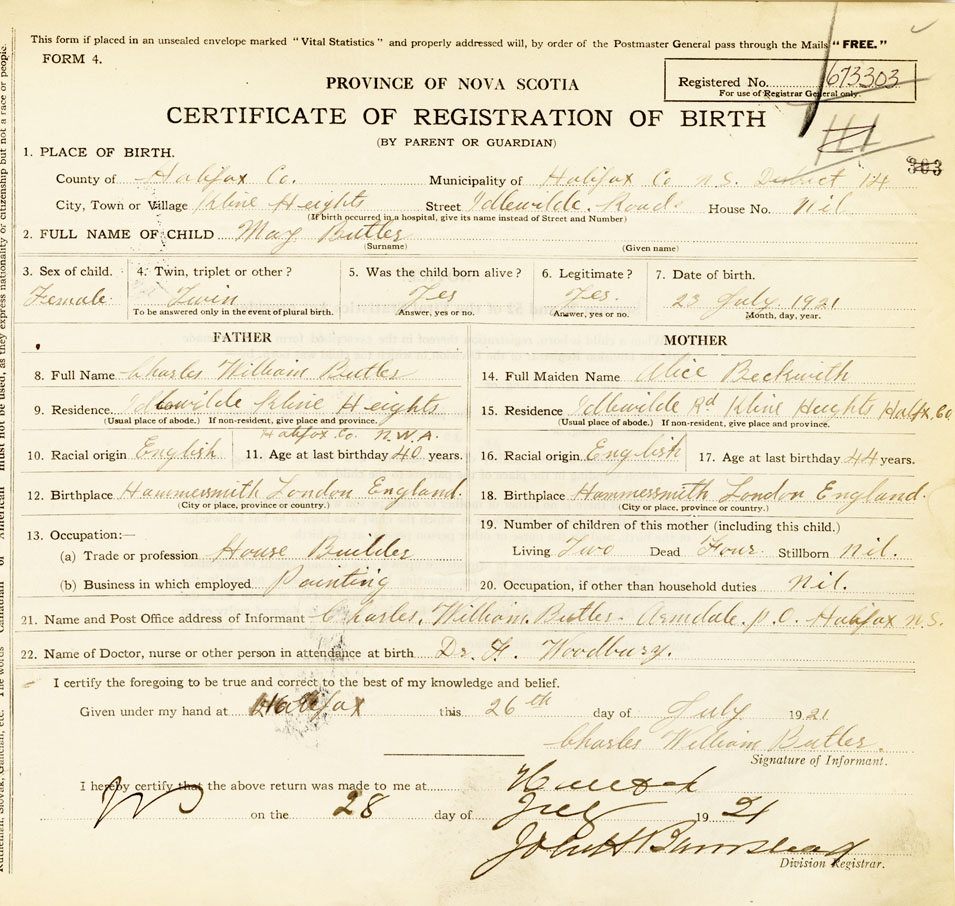 This form if placed in an unsealed envelope marked "Vital Statistics" and properly addressed will, by order of the Postmaster General pass through the Mails "FREE."
FORM 4.
PROVINCE OF NOVA SCOTIA
Registered No. 673303
For use of Registrar General only.
CERTIFICATE OF REGISTRATION OF BIRTH
(BY PARENT OR GUARDIAN)
303
1. PLACE OF BIRTH.
County of Halifax Co. Municipality of Halifax Co N.S. District 14
City, Town or Village Kline Heights Street Idlewilde Road House No. Nil
(If birth occurred in a hospital, give its name instead of Street and Number)
2. FULL NAME OF CHILD May Butler
(Surname) (Given name)
3. Sex of child. 4. Twin, triplet or other? 5. Was the child born alive? 6. Legitimate? 7. Date of birth.
Female Twin Yes Yes. 23 July 1921
To be answered only in the event of plural birth. Answer, yes or no. Answer, yes or no. Month, day, year.
FATHER MOTHER
8. Full Name Charles William Butler 14. Full Maiden Name Alice Beckwith
9. Residence. Idlewilde Kline Heights 15. Residence Idlewilde Rd Kline Heights Halfx. Co
(Usual place of abode.) If non-resident, give place and province. (Usual place of abode.) If non-resident, give place and province.
Halifax Co. N.W.A.
10. Racial origin English 11. Age at last birthday 40 years. 16. Racial origin English 17. Age at last birthday 44 years.
12. Birthplace Hammersmith London England. 18. Birthplace Hammersmith London England.
(City or place, province or country.) (City or place, province or country.)
13. Occupation:— 19. Number of children of this mother (including this child.)
(a) Trade or profession House Builder Living Two Dead Four Stillborn Nil.
(b) Business in which employed Painting 20. Occupation, if other than household duties Nil.
21. Name and Post Office address of Informant Charles. William. Butler. Armdale. P.O. Halifax N.S.
22. Name of Doctor, nurse or other person in attendance at birth Dr. F. Woodbury.
I certify the foregoing to be true and correct to the best of my knowledge and belief.
Given under my hand at Halifax this 26th day of July 1921
Charles William Butler.
Signature of Informant.
I hereby certify that the above return was made to me at
on the 28 day of July 1921
Division Registrar.